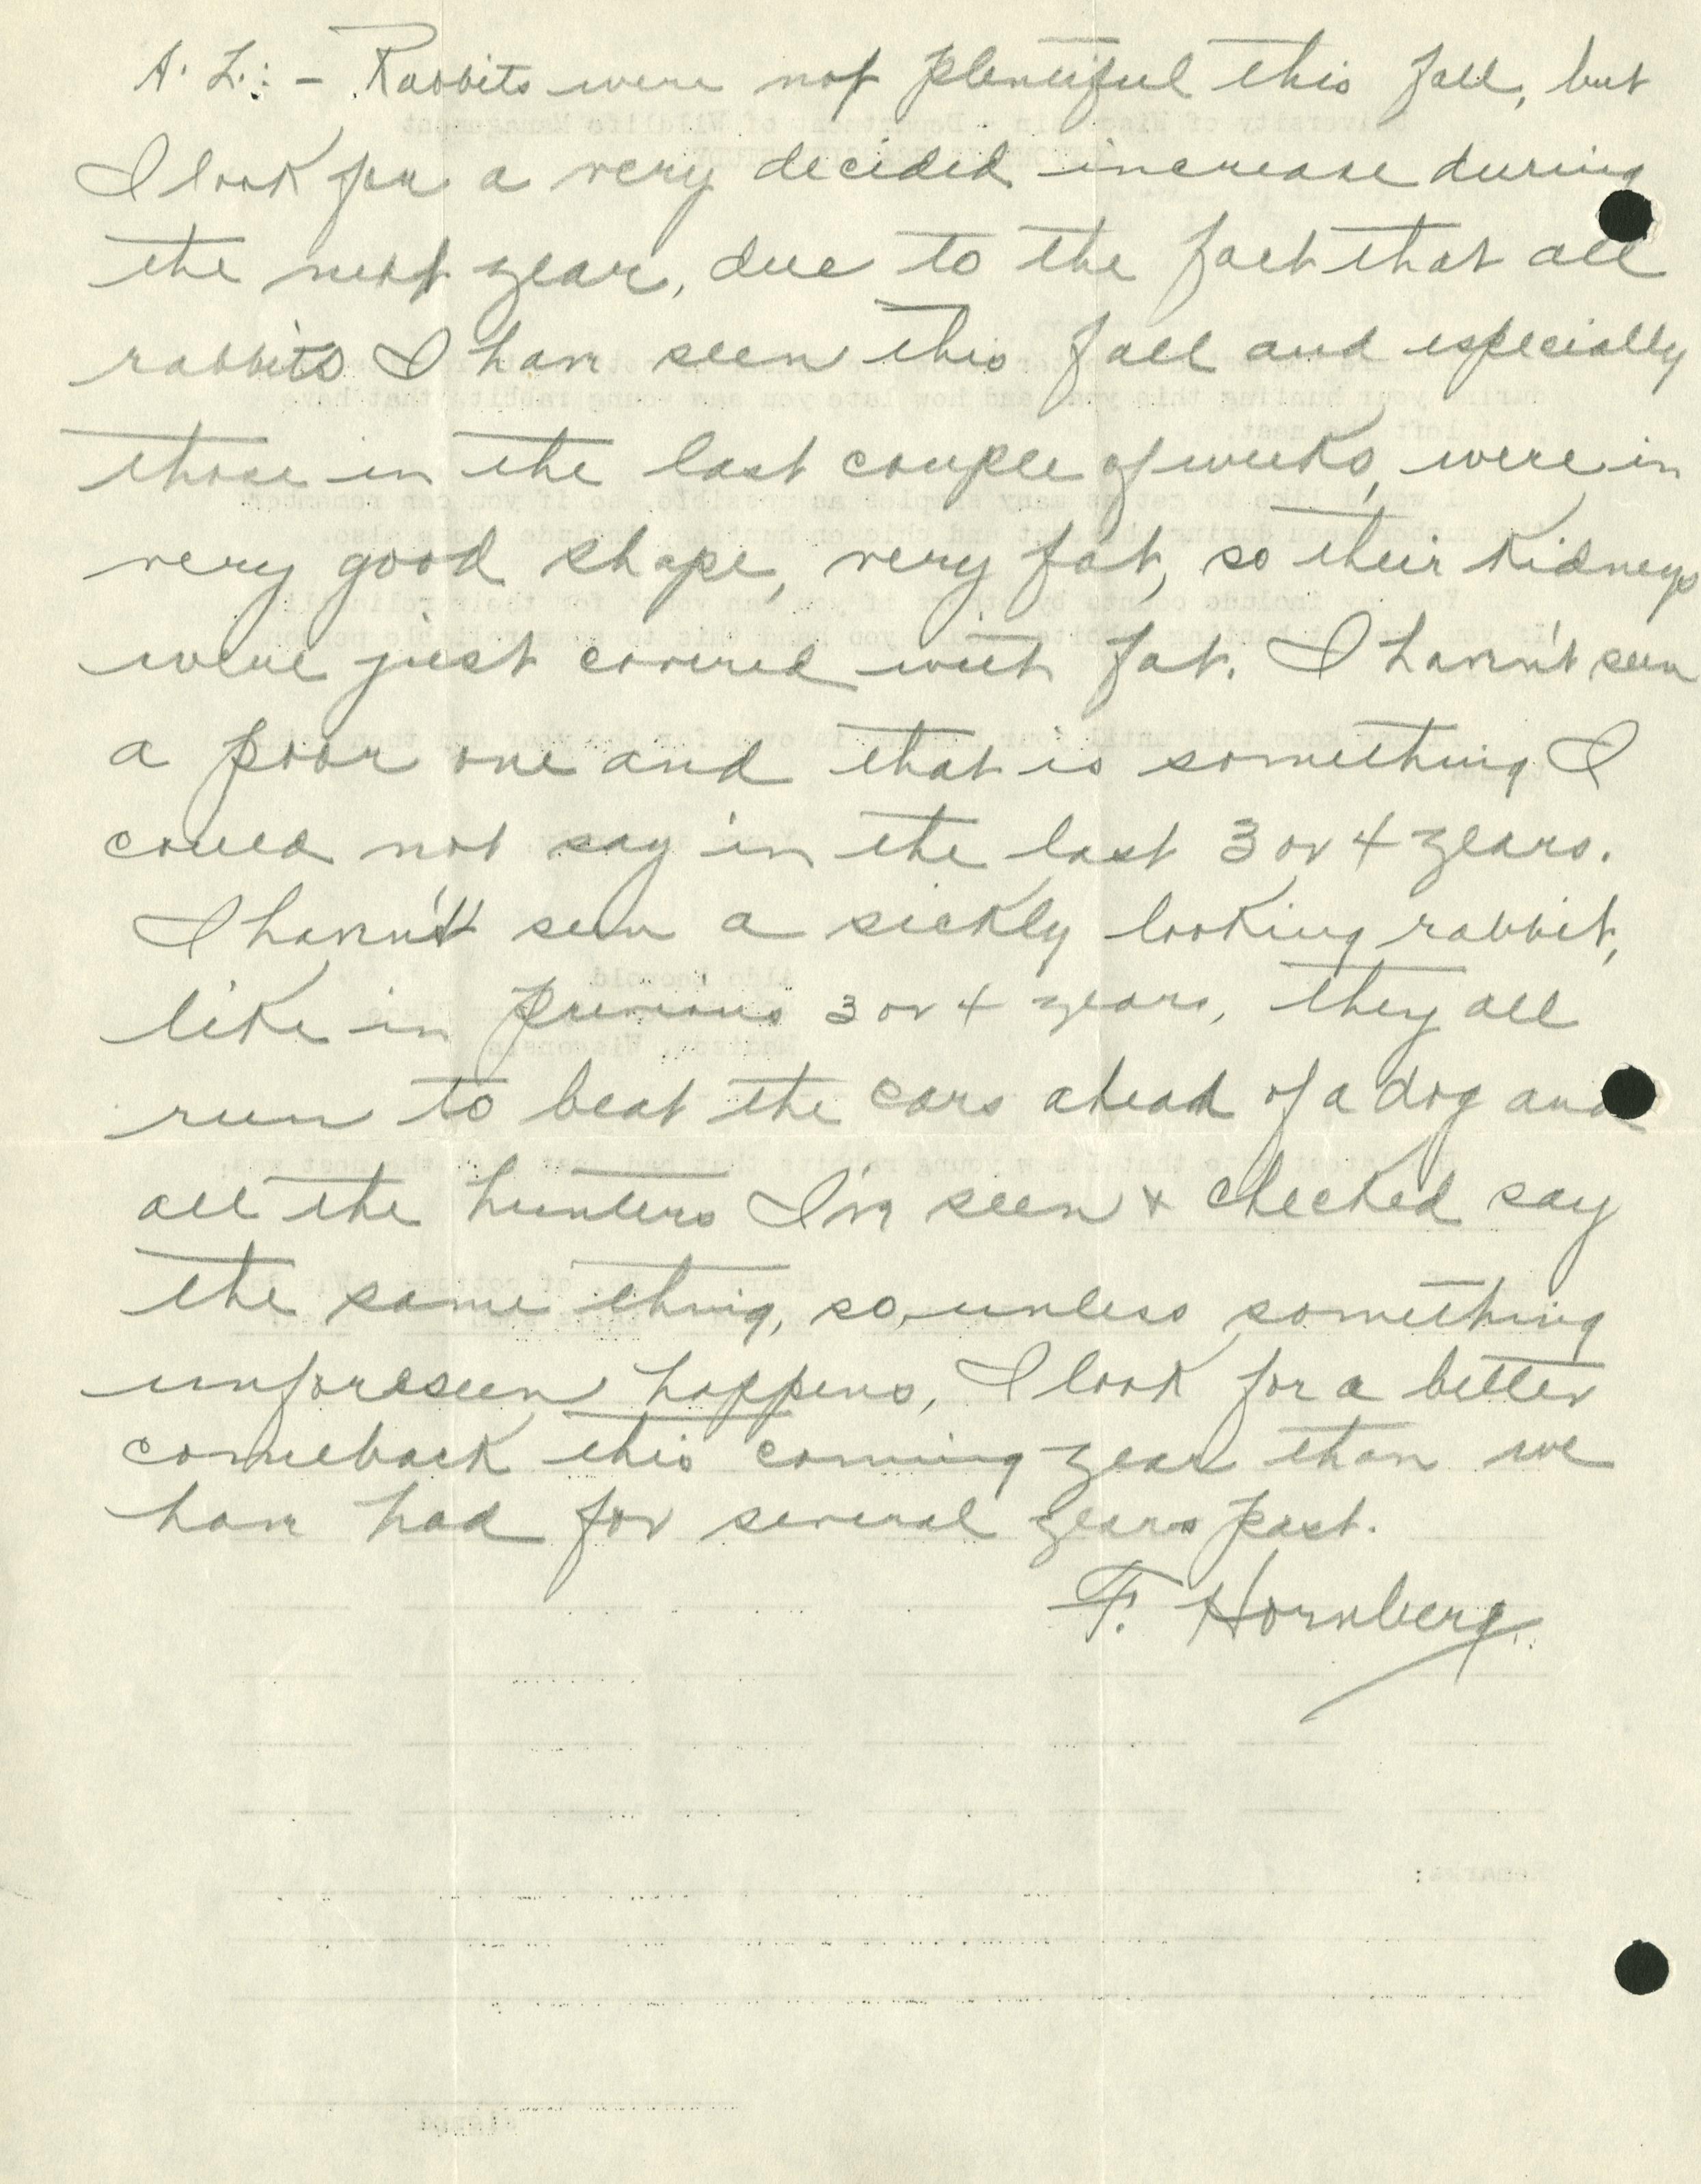 A. L.: - Rabbits were not plentiful this fall, but
I look for a very decided increase during
the next year, due to the fact that all
rabbits I have seen this fall and especially
those in the last couple of weeks, were in
very good shape, very fat, so their kidneys
were just covered with fat. I haven't seen
a poor one and that is something I
could not say in the last 3 or 4 years.
I haven't seen a sickly looking rabbit,
like in previous 3 or 4 years, they all
run to beat the cars ahead of a dog and
all the hunters I've seen & checked say
the same thing, so, unless something
unforeseen happens, I look for a better
comeback this coming year than we
have had for several years past.
F. Hornberg.